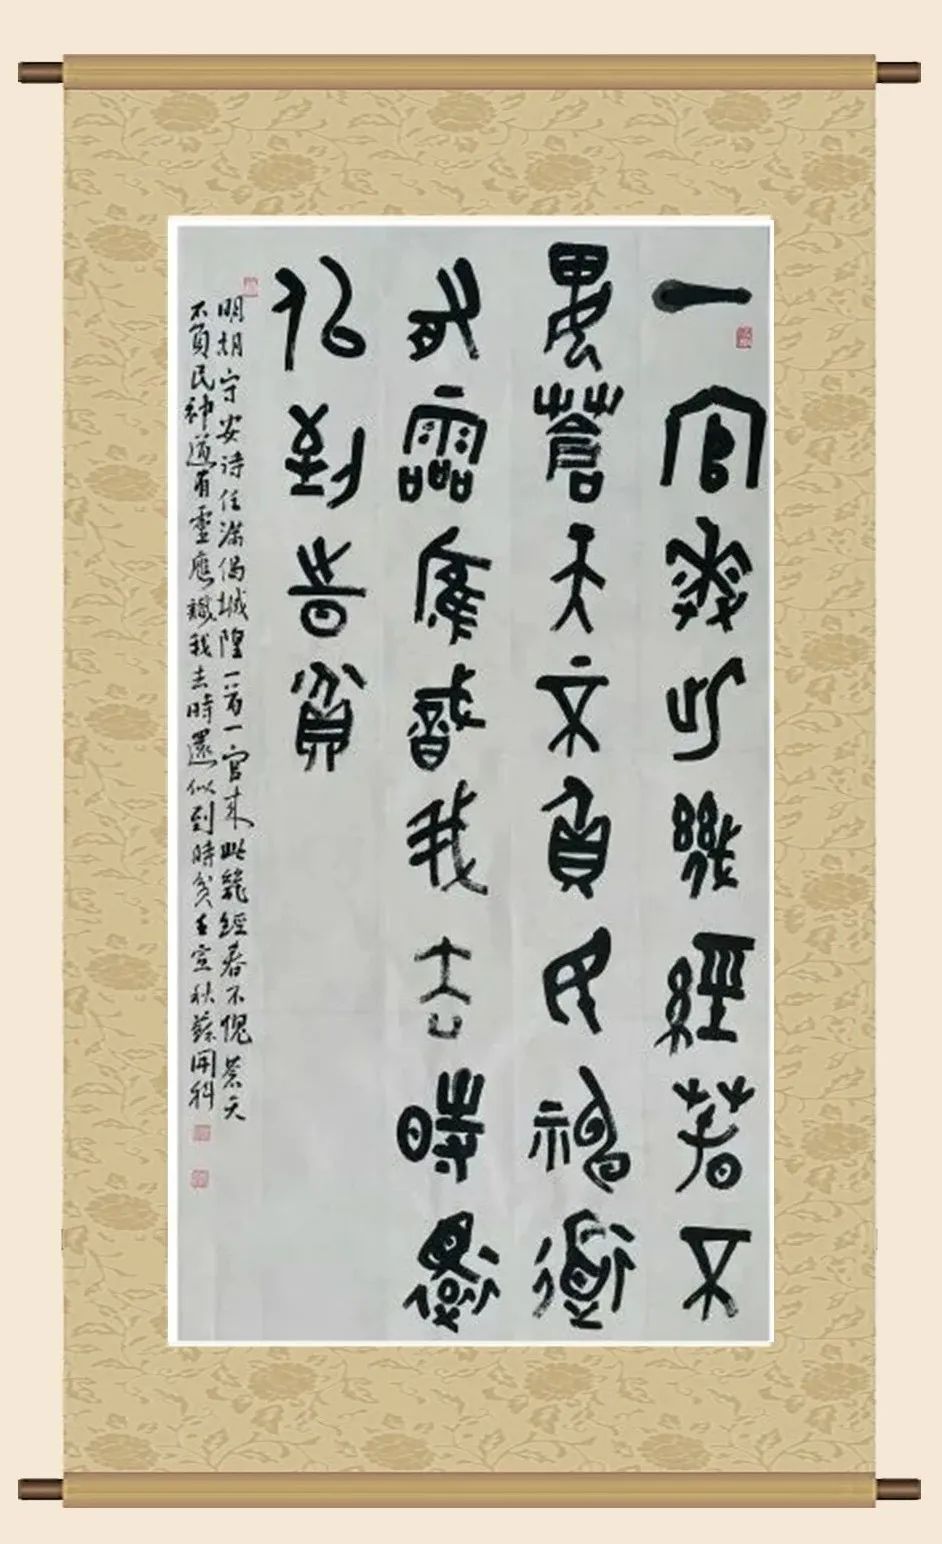 一官來此幾經春不
愧蒼天不負民神道
有靈應識我去時還
似到時貧
明胡守安詩任滿謁城隍一首一官來此幾經春不愧蒼天
不負民神道有靈應識我去時還似到時貧壬寅秋蘇開科